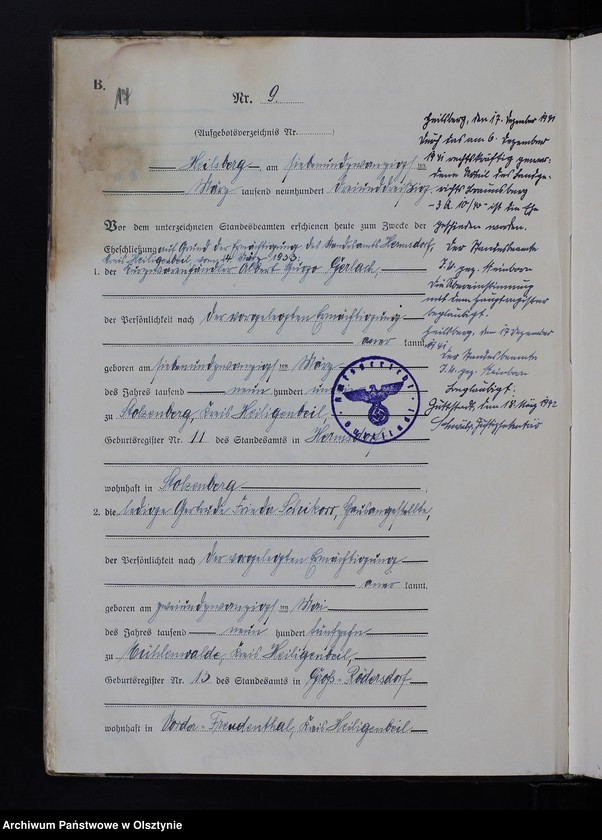 B.
14
Nr. 9.
(Aufgebotsverzeichnis Nr. )
Heilsberg, am siebenundzwanzigsten
März tausend neunhundert dreiunddreißig
Vor dem unterzeichneten Standesbeamten erschienen heute zum Zwecke der
Eheschließung auf Grund der Ermächtigung des Standesamts Hermsdorf,
Kreis Heiligenbeil, vom 14. März 1933:
1. der Albert Gerlach,
der Persönlichkeit nach der vorgelegten Ermächtigung
aner kannt,
geboren am siebenundzwanzigsten März
des Jahres tausend neun hundert
zu Stolzenberg, Kreis Heiligenbeil,
Geburtsregister Nr. 11 des Standesamts in
wohnhaft in Stolzenberg
2. die ledige Gertrude Frieda Hausangestellte,
der Persönlichkeit nach der vorgelegten Ermächtigung
aner kannt,
geboren am zweiundzwanzigsten Mai
des Jahres tausend neun hundert fünfzehn
zu Mühlenwalde, Kreis Heiligenbeil,
Geburtsregister Nr. 13 des Standesamts in Groß-Rödersdorf
wohnhaft in Vorder-Freudenthal, Kreis Heiligenbeil
Heilsberg, den 17. Dezember 1941
Durch das am 6. Dezember
1941 rechtskräftig gewor-
dene Urteil des Landge-
richts Braunsberg
ist die Ehe
geschieden worden.
Der Standesbeamte
I.V. gez. Steinborn
Die Übereinstimmung
mit dem Hauptregister
beglaubigt.
Heilsberg, den 17. Dezember
1941.
Der Standesbeamte
I.V. gez. Steinborn
Beglaubigt.
Guttstadt, den 18. März 1942
Justizsekretär
Amtsgericht Guttstadt
Archiwum Państwowe w Olsztynie